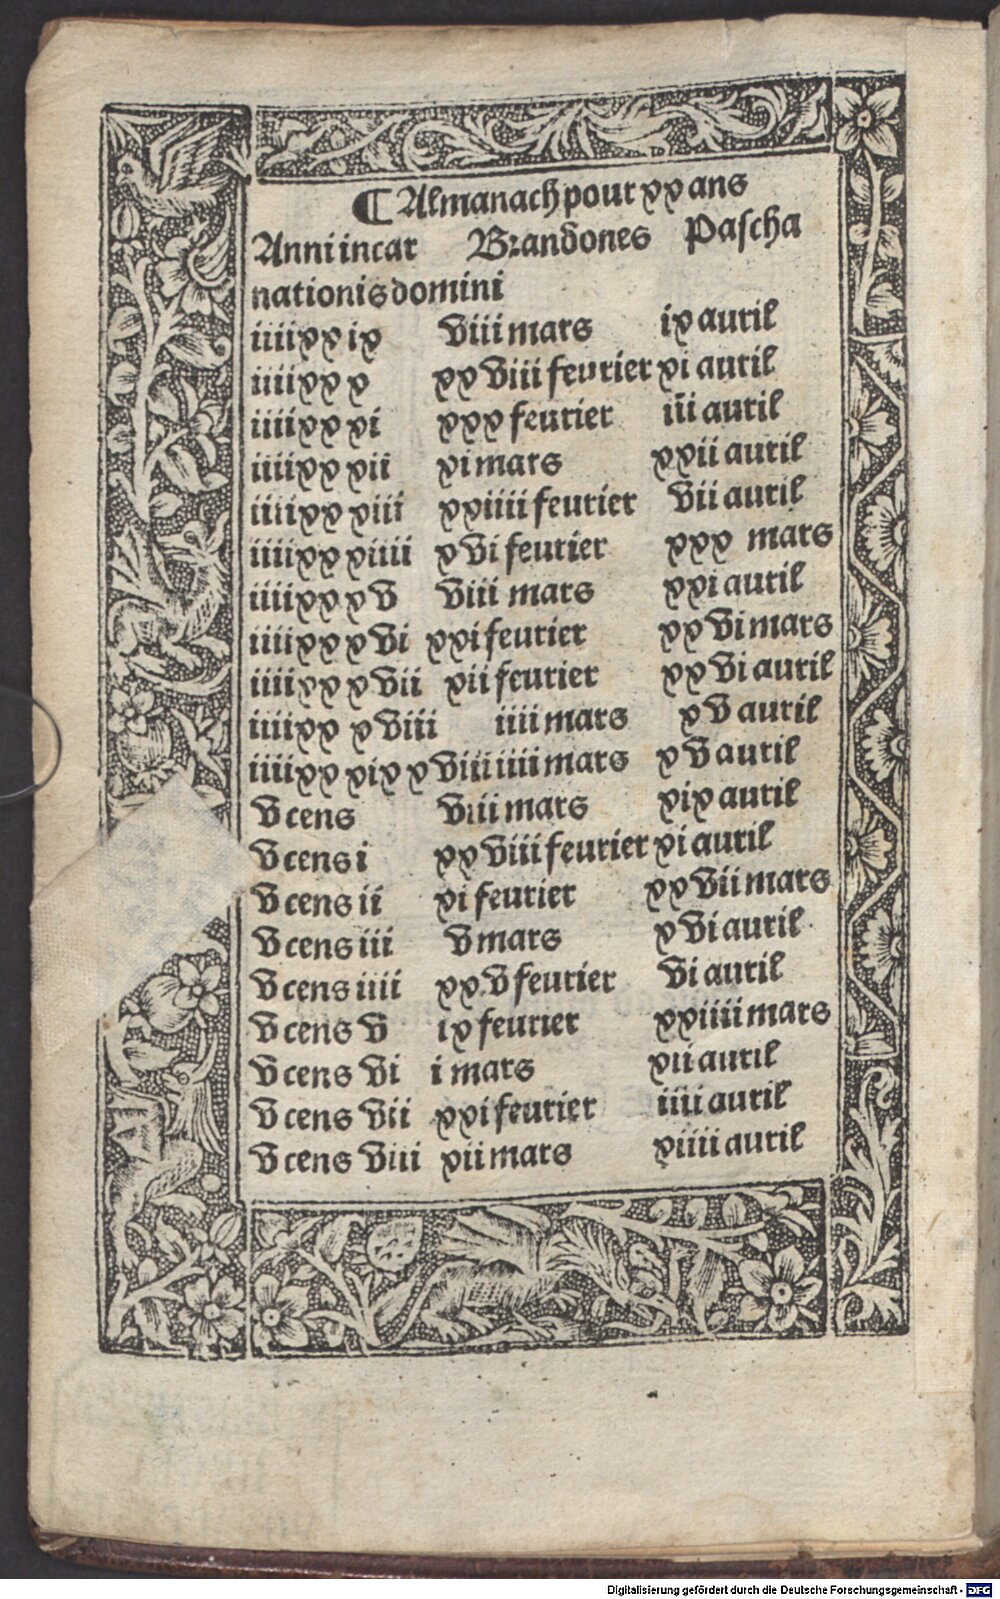 ¶ Almanach pour xx ans
Anni incar Brandones Pascha
nationis domini
iiiixx ix viii mars ix auril
iiiixx x xxviii feurier xi auril
iiiixx xi xxx feurier iii auril
iiiixx xii xi mars xxii auril
iiiixx xiii xxiiii feurier vii auril
iiiixx xiiii xvi feurier xxx mars
iiiixx xv viii mars xxi auril
iiiixx xvi xxi feurier xxvi mars
iiiixx xvii xii feurier xxvi auril
iiiixx xviii iiii mars xv auril
iiiixx xix xviii iiii mars xv auril
v cens viii mars xix auril
v cens i xxviii feurier xi auril
v cens ii xi feurier xxvii mars
v cens iii v mars xvi auril
v cens iiii xxv feurier vi auril
v cens v ix feurier xxiiii mars
v cens vi i mars xii auril
v cens vii xxi feurier iiii auril
v cens viii xii mars xiiii auril
Digitalisierung gefördert durch die Deutsche Forschungsgemeinschaft - DFG